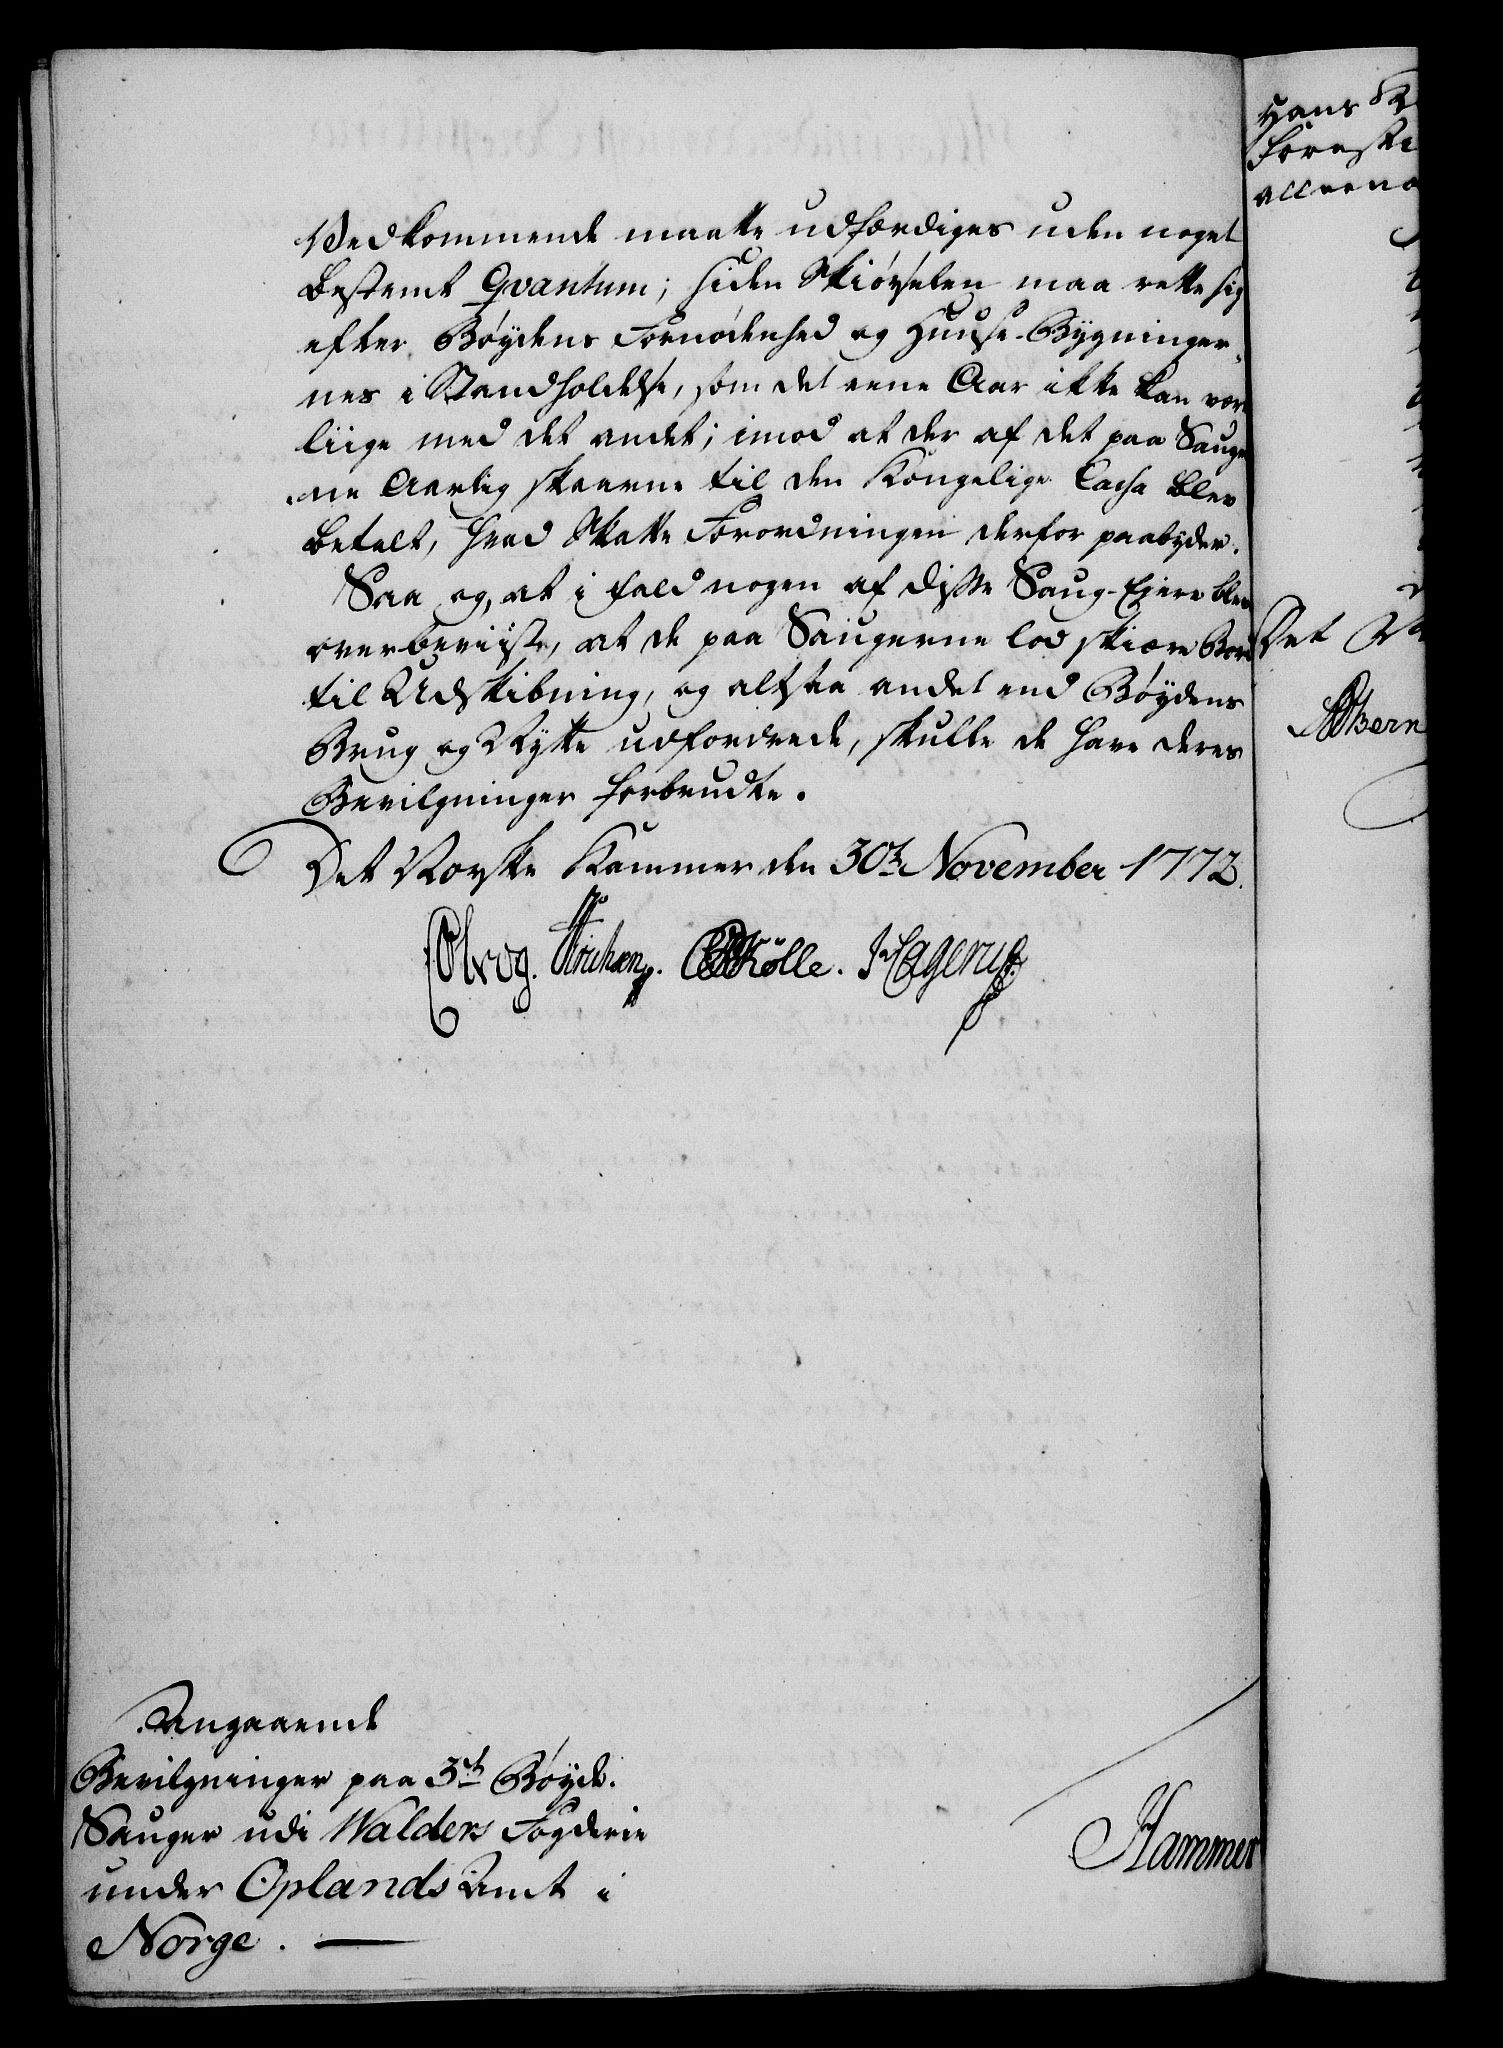 Vedkommende maatte udfærdiges uden noget
bestemt Qvantum; siden Skiørselen maa rette sig
efter Bøydens Fornødenhed og Huuse-Bygninger-
nes i Standholdelse, som det eene Aar ikke kan være
liige med det andet; imod at der af det paa Sauge
ne Aarlig skaarne til den Kongelige Cassa blev
betalt, hvad Skatte Forordningen derfor paabyder.
Saa og, at i fald nogen af disse Saug-Ejere blev
overbeviiste, at de paa Saugerne lod skiære Bord
til Udskibning, og altsaa andet end Bøydens
Brug og Nytte udfordrede, skulle de have deres
Bevilgninger forbrudte.
Det Norske Kammer den 30te November 1772.
Kølle. Hagerup.
Angaaende
Bevilgninger paa 3de Bøyde-
Sauger udi Walders Fogderie
under Oplands Amt i
Norge.
Hammer
Hans K
Foreste
alleena
Det No
Bern